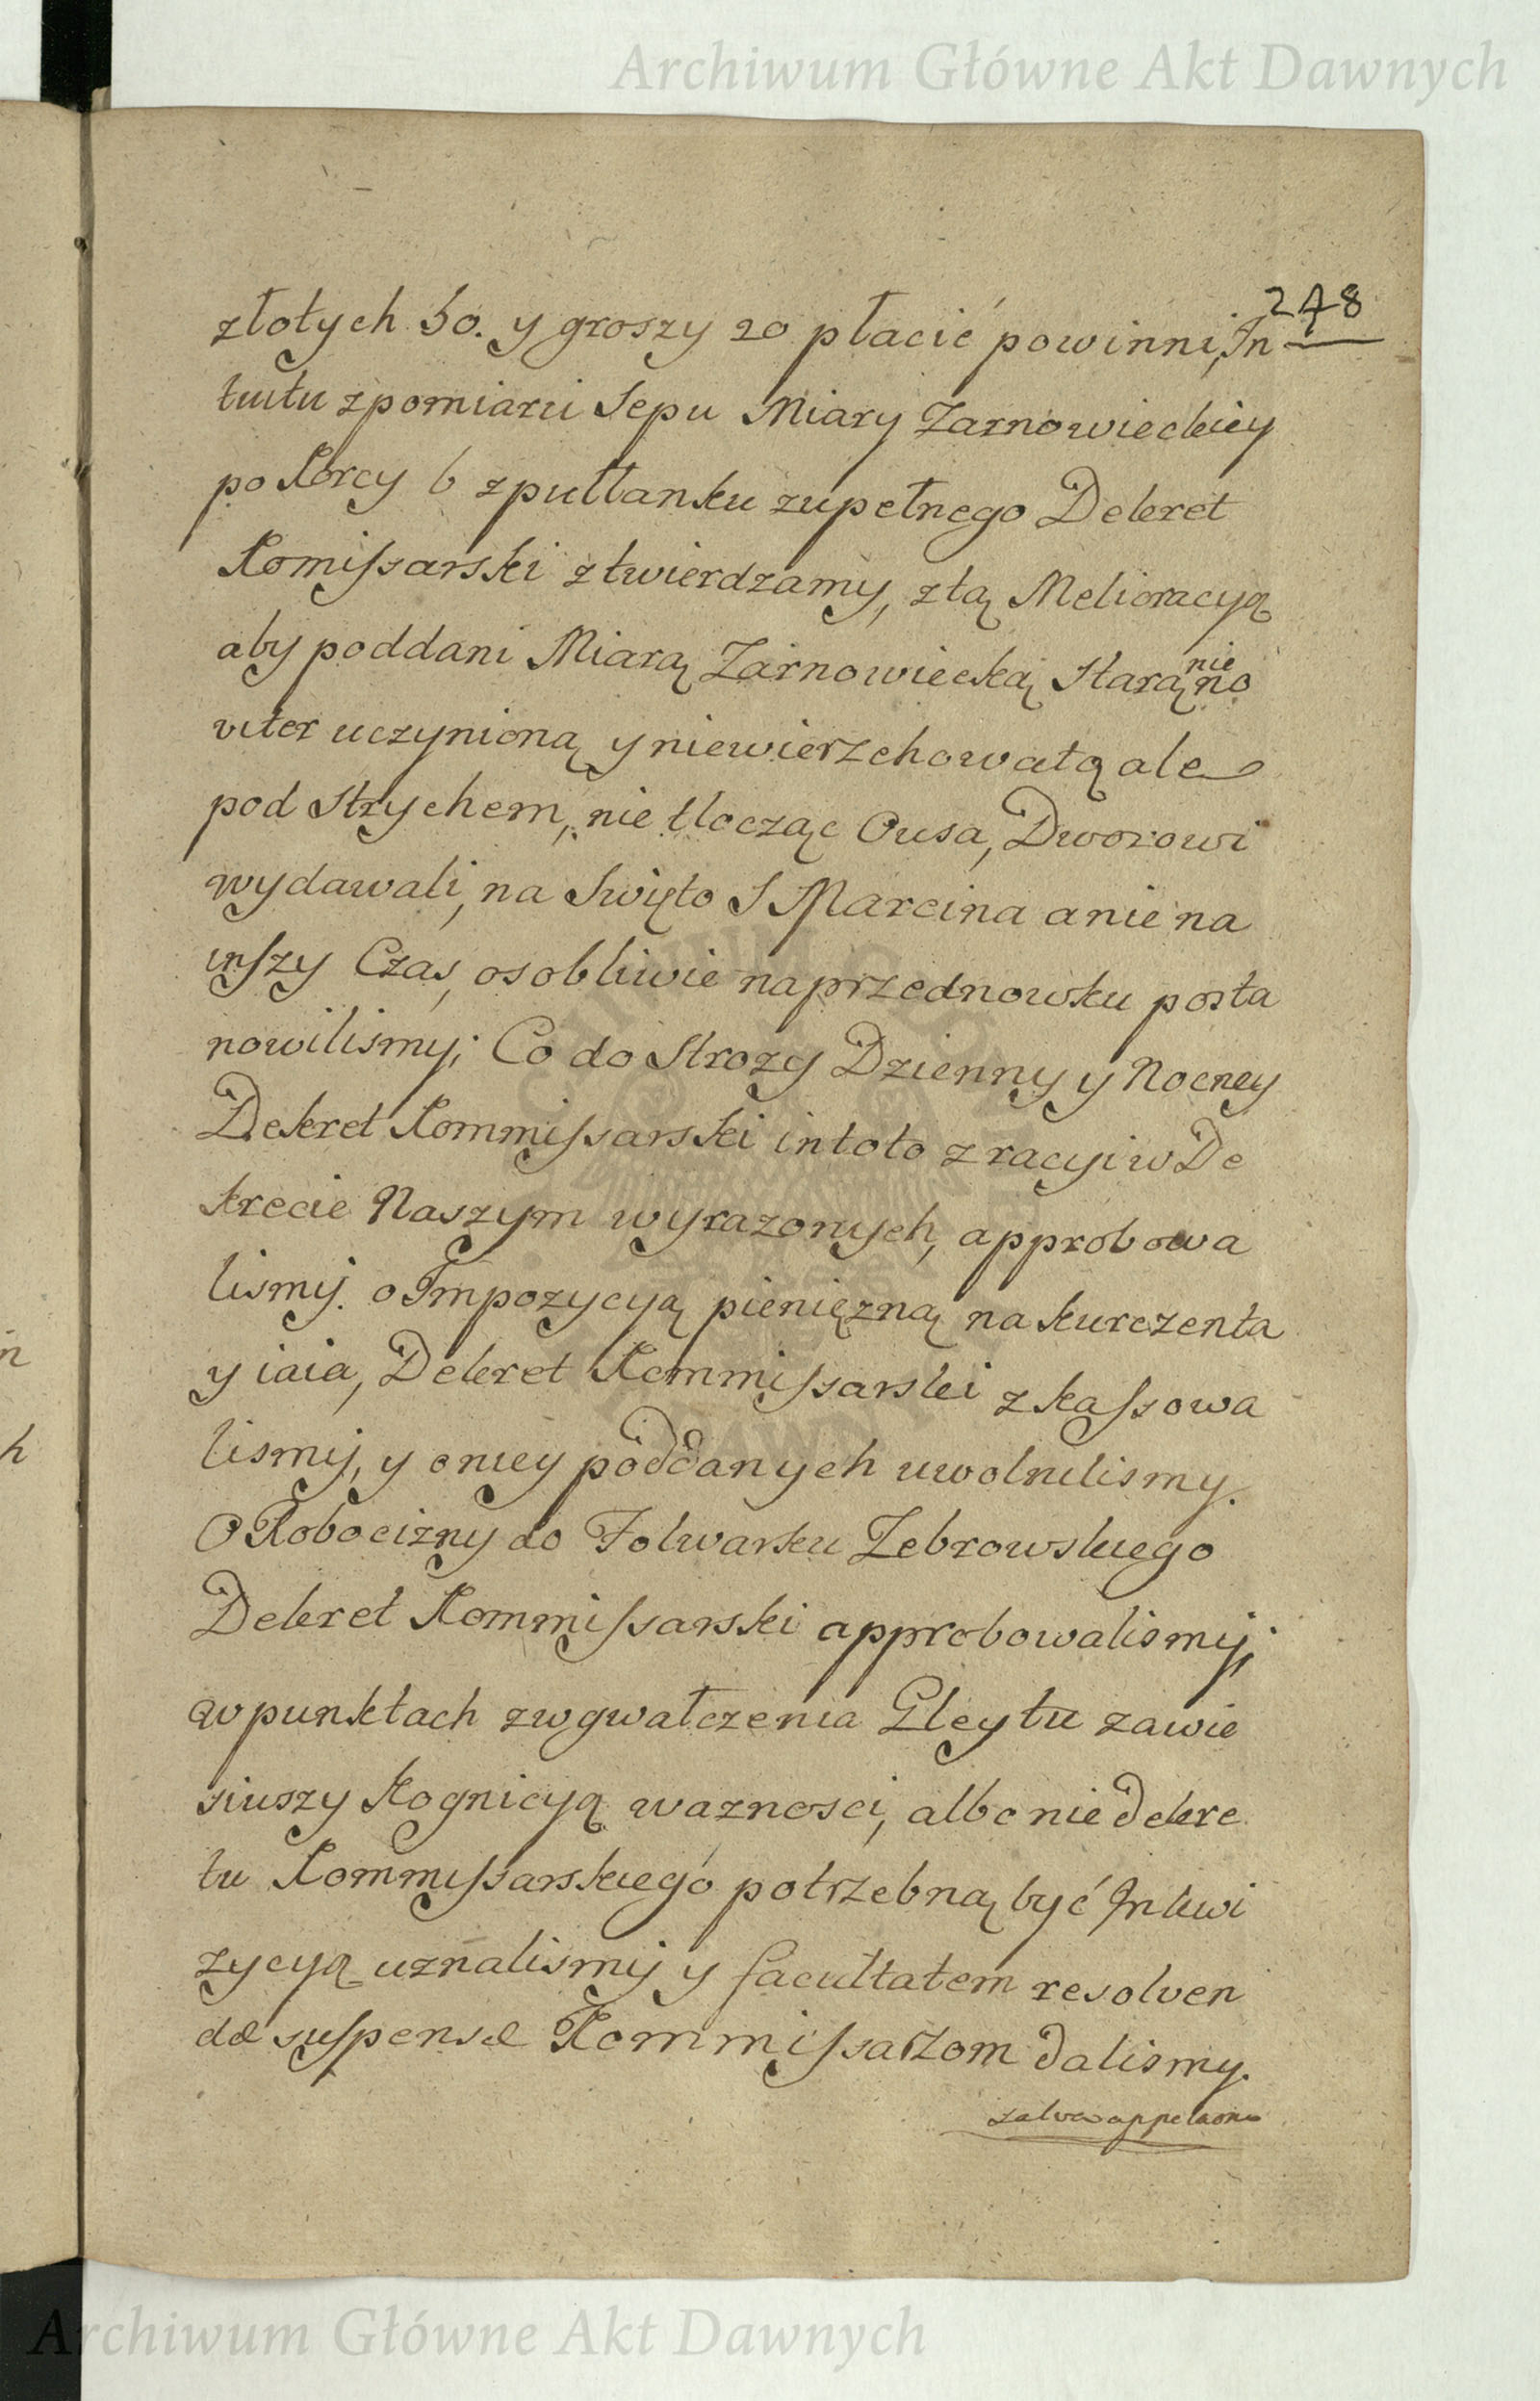 Archiwum Główne Akt Dawnych
248
złotych 50. y groszy 20 płacić powinni, In
tuitu z pomiaru Sepu Miary Zarnowieckiey
po Korcy 6 z pułłanku zupełnego Dekret
Komissarski ztwierdzamy, z tą Melioracyą
aby poddani Miarą Zarnowiecką Starą nie no
viter uczynioną y niewierzchowatą ale
pod Strychem, nie tłocząc Owsa, Dworowi
wydawali, na Swięto S Marcina a nie na
inszy Czas, osobliwie na przednowku posta
nowilismy; Co do Strozy Dzienny y Nocney
Dekret Kommissarski in toto z racyi w De
krecie Naszym wyrazonych, approbowa
lismy. o Impozycyą pienięzną na kurczenta
y iaia, Dekret Kommissarski zkassowa
lismy, y oniey poddanych uwolnilismy.
O Robocizny do Folwarku Zebrowskiego
Dekret Kommissarski approbowalismy;
w punktach zwgwałczenia Gleytu zawie
siuszy Kognicyą waznosci, albo nie dekre
tu Kommissarskiego potrzebną być Inkwi
zycyą uznalismy y facultatem resolven
dæ suspensæ Kommissarzom dalismy.
salva appelaone
n
h
Archiwum Główne Akt Dawnych